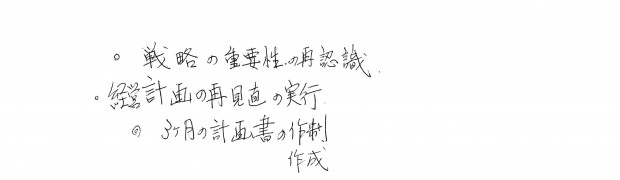 。戦略の重要性の再認識.
。経営計画の再見直の実行
◎ 3ヶ月の計画書の作制
作成